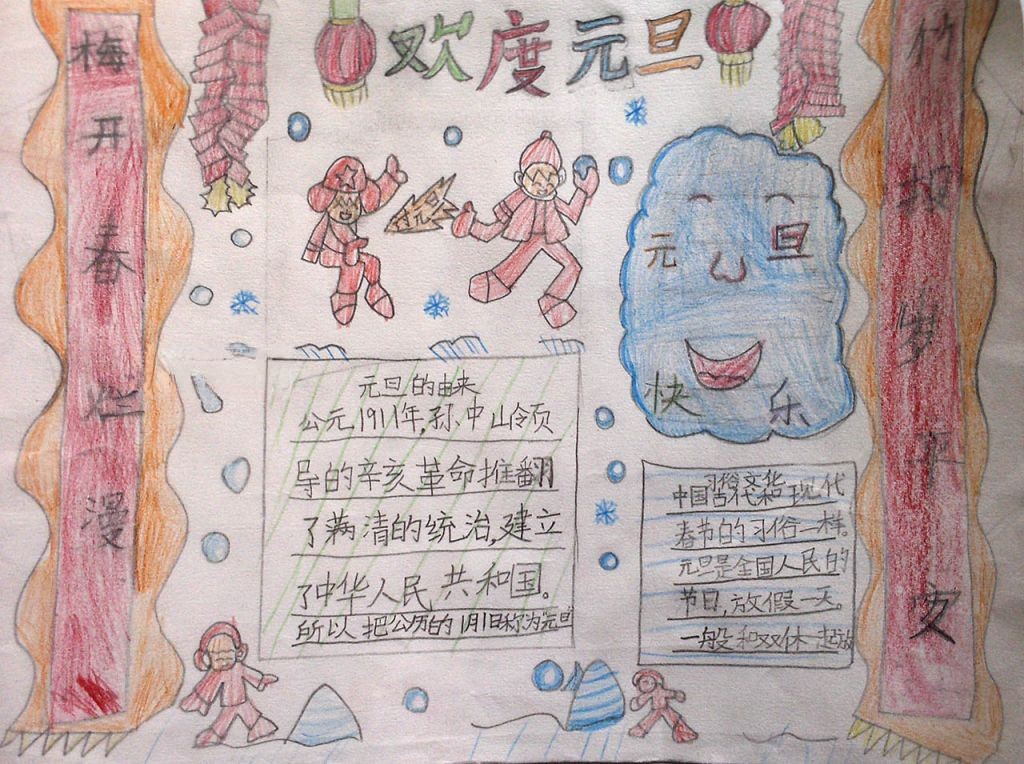 欢度元旦
梅开春烂漫
竹报岁平安
元旦
元旦
快乐
元旦的由来
公元1911年,孙中山领
导的辛亥革命推翻
了满清的统治,建立
了中华人民共和国。
所以把公历的1月1日称为元旦
习俗文化
中国古代和现代
春节的习俗一样。
元旦是全国人民的
节日,放假一天。
一般和双休一起放